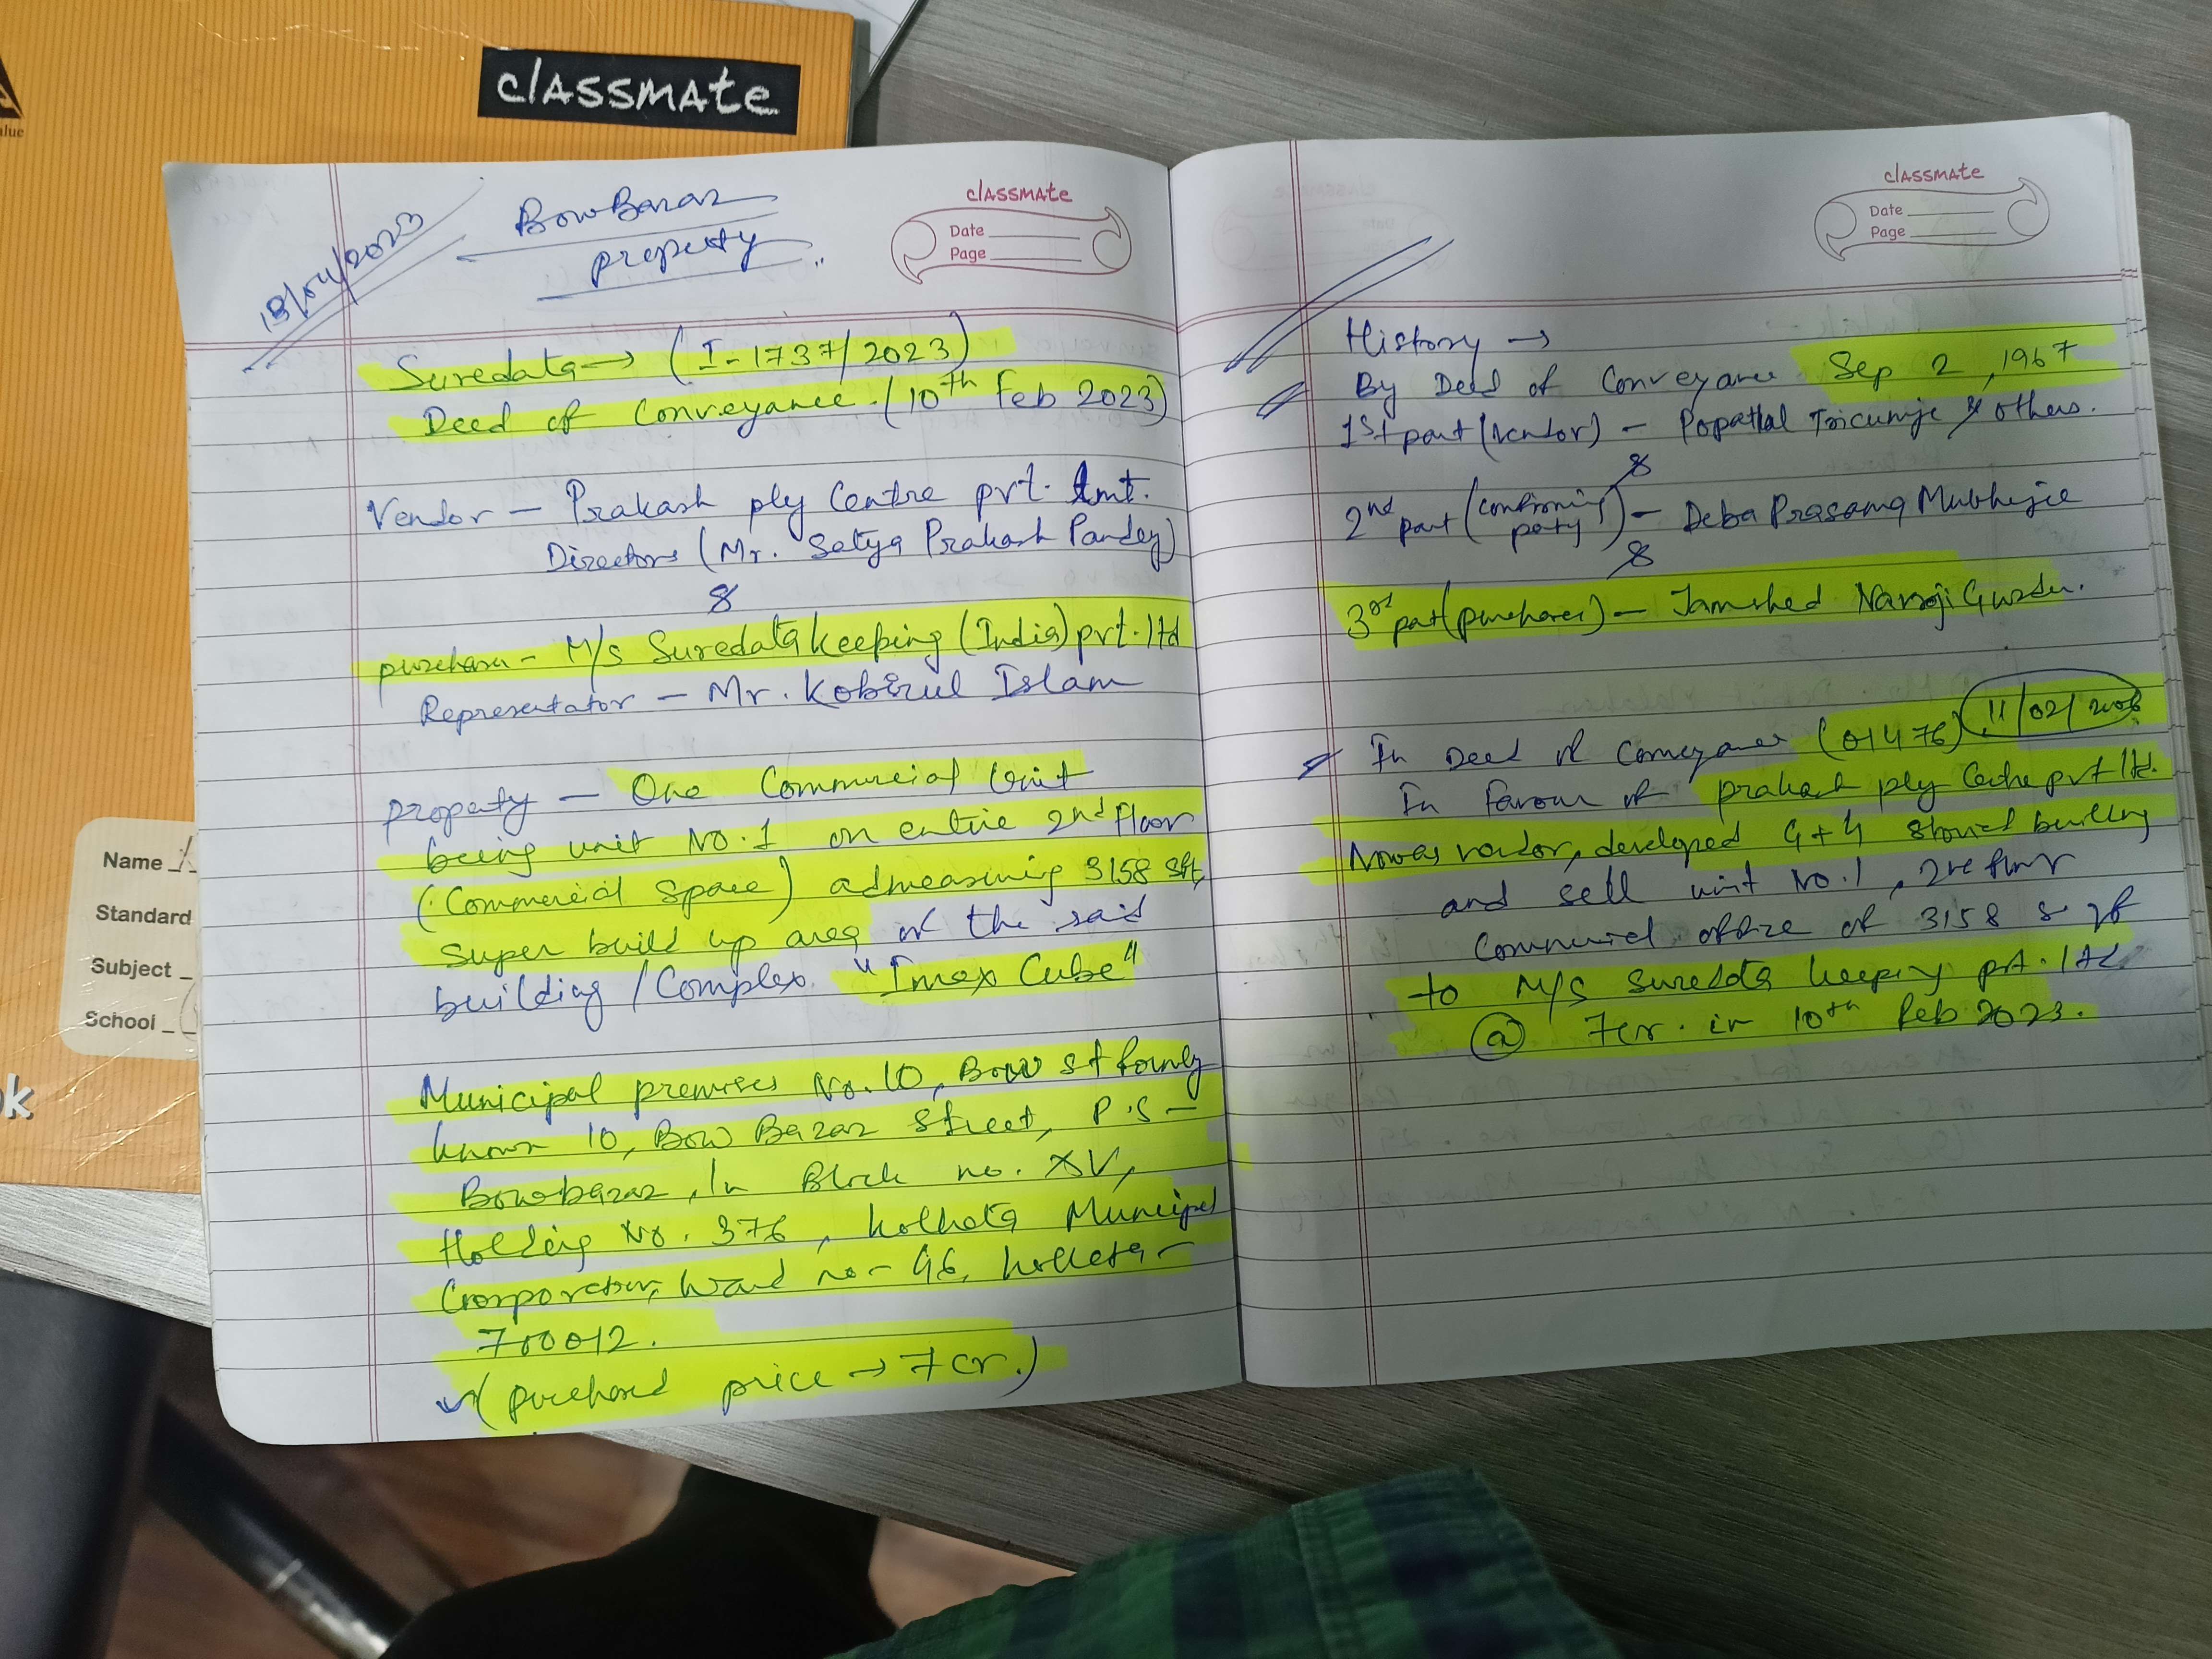 classmate
Name
Standard
Subject
School
18/04/2023
BowBazar
property
classmate
Date
Page
Suredata → (I-1737/2023)
Deed of Conveyance. (10th Feb 2023)
Vendor - Prakash ply Centre pvt. Lmt.
Directors (Mr. Satya Prakash Pandey)
&
purchaser - M/s Suredatakeeping (India) pvt. ltd
Representator - Mr. Kobirul Islam
property - One Commercial Unit
being unit No. 1 on entire 2nd Floor
(Commercial Space) admeasuring 3158 sft,
super build up area of the said
building / Complex "Imax Cube"
Municipal premises No. 10, Bow st formly
known 10, Bow Bazar Street, P.S -
Bowbazar, In Block no. XV,
Holding No. 376, Kolkata Muncipal
Corporation, Ward no - 46, Kolkata -
700012.
(purchased price → 7 cr.)
classmate
Date
Page
History →
By Deed of Conveyance Sep 2, 1967
1st part (vendor) - Popatlal Tricumje & others.
&
2nd part (confirming party) - Deba Prasama Mukherjee
&
3rd part (purchaser) - Jamshed Naroji Guzder.
In Deed of Conveyance (01476), 11/02/2006
In Favour of prakash ply Centre pvt ltd.
Now as vendor, developed G+4 storied building
and sell unit No. 1, 2nd floor
Commercial office of 3158 sqf
to M/s Suredata keeping pvt. ltd
@ 7cr. in 10th Feb 2023.